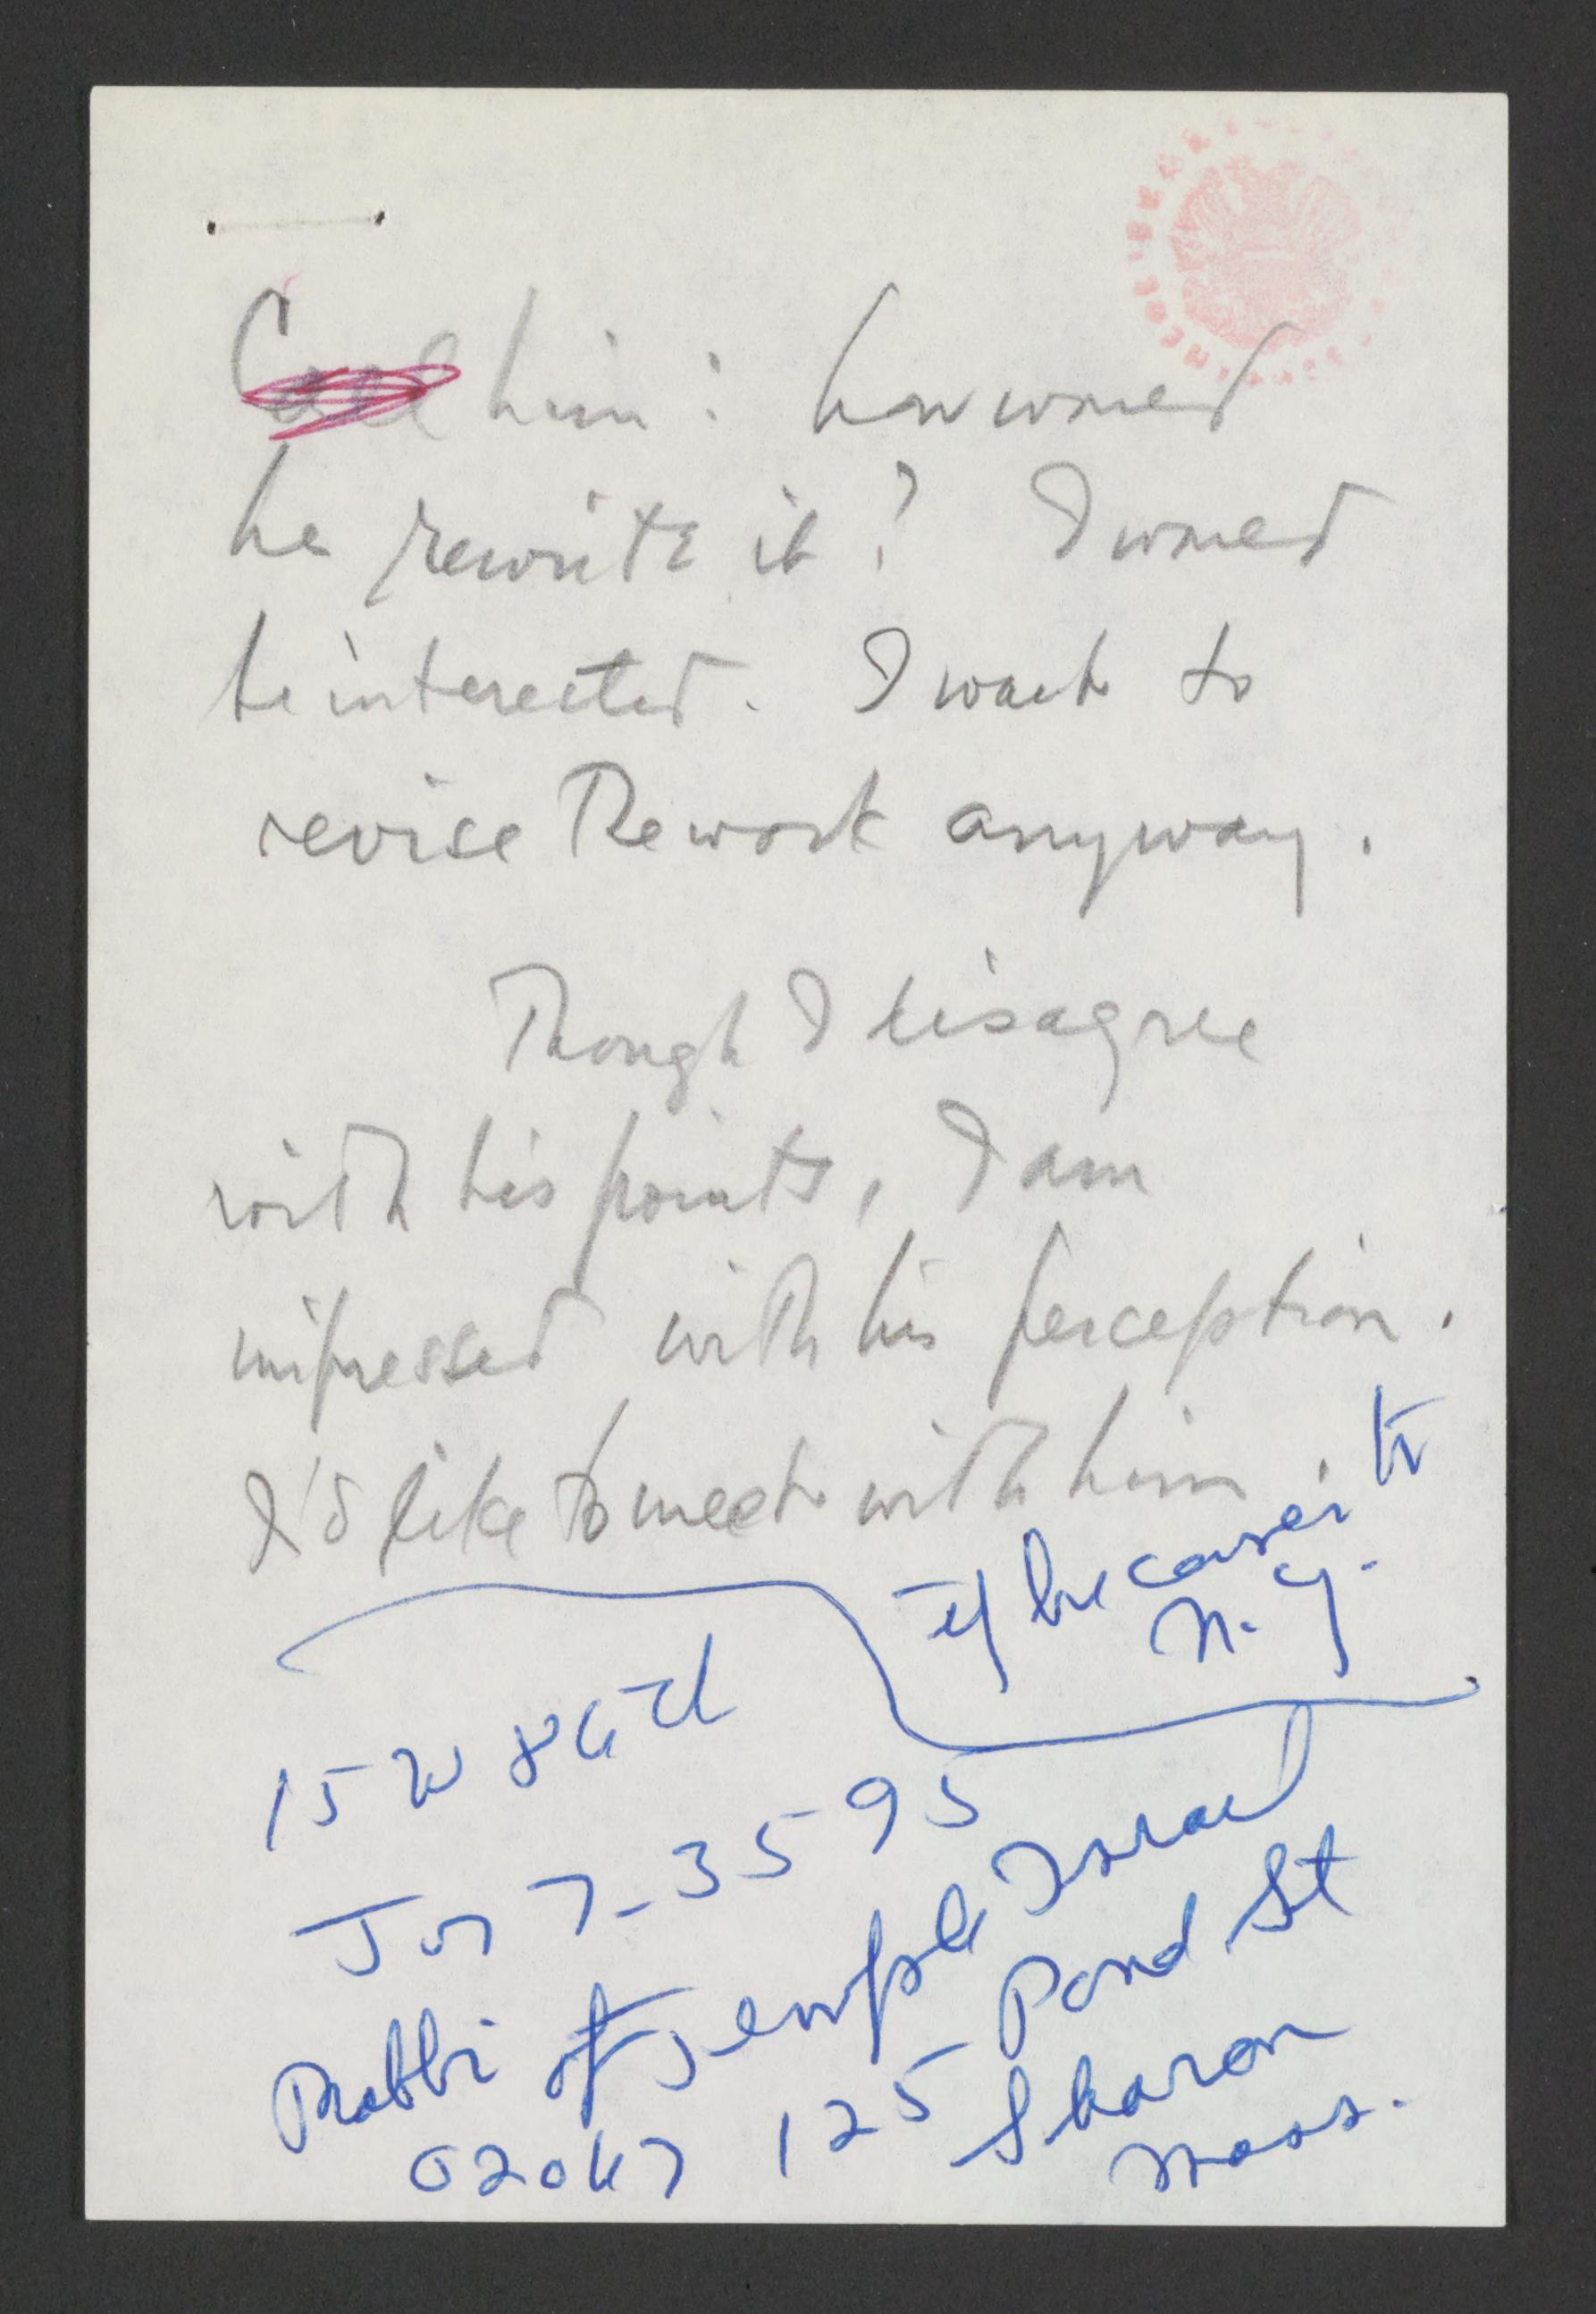 Call him: how would
he rewrite it? I would
be interested. I want to
revise the work anyway.
Though I disagree
with his points, I am
impressed with his perception.
I'd like to meet with him.
if he comes to
N.Y.
15 W 86th
7-3595
Rabbi of Temple Israel
125 Pond St
Sharon
02067
Mass.